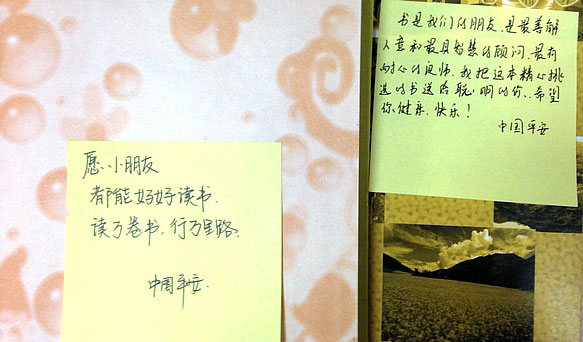 愿小朋友
都能好好读书.
读万卷书,行万里路.
中国平安.
书是我们的朋友,是最善解
人意和最具智慧的顾问,最有
耐心的良师.我把这本精心挑
选的书送给聪明的你,希望
你健康、快乐!
中国平安